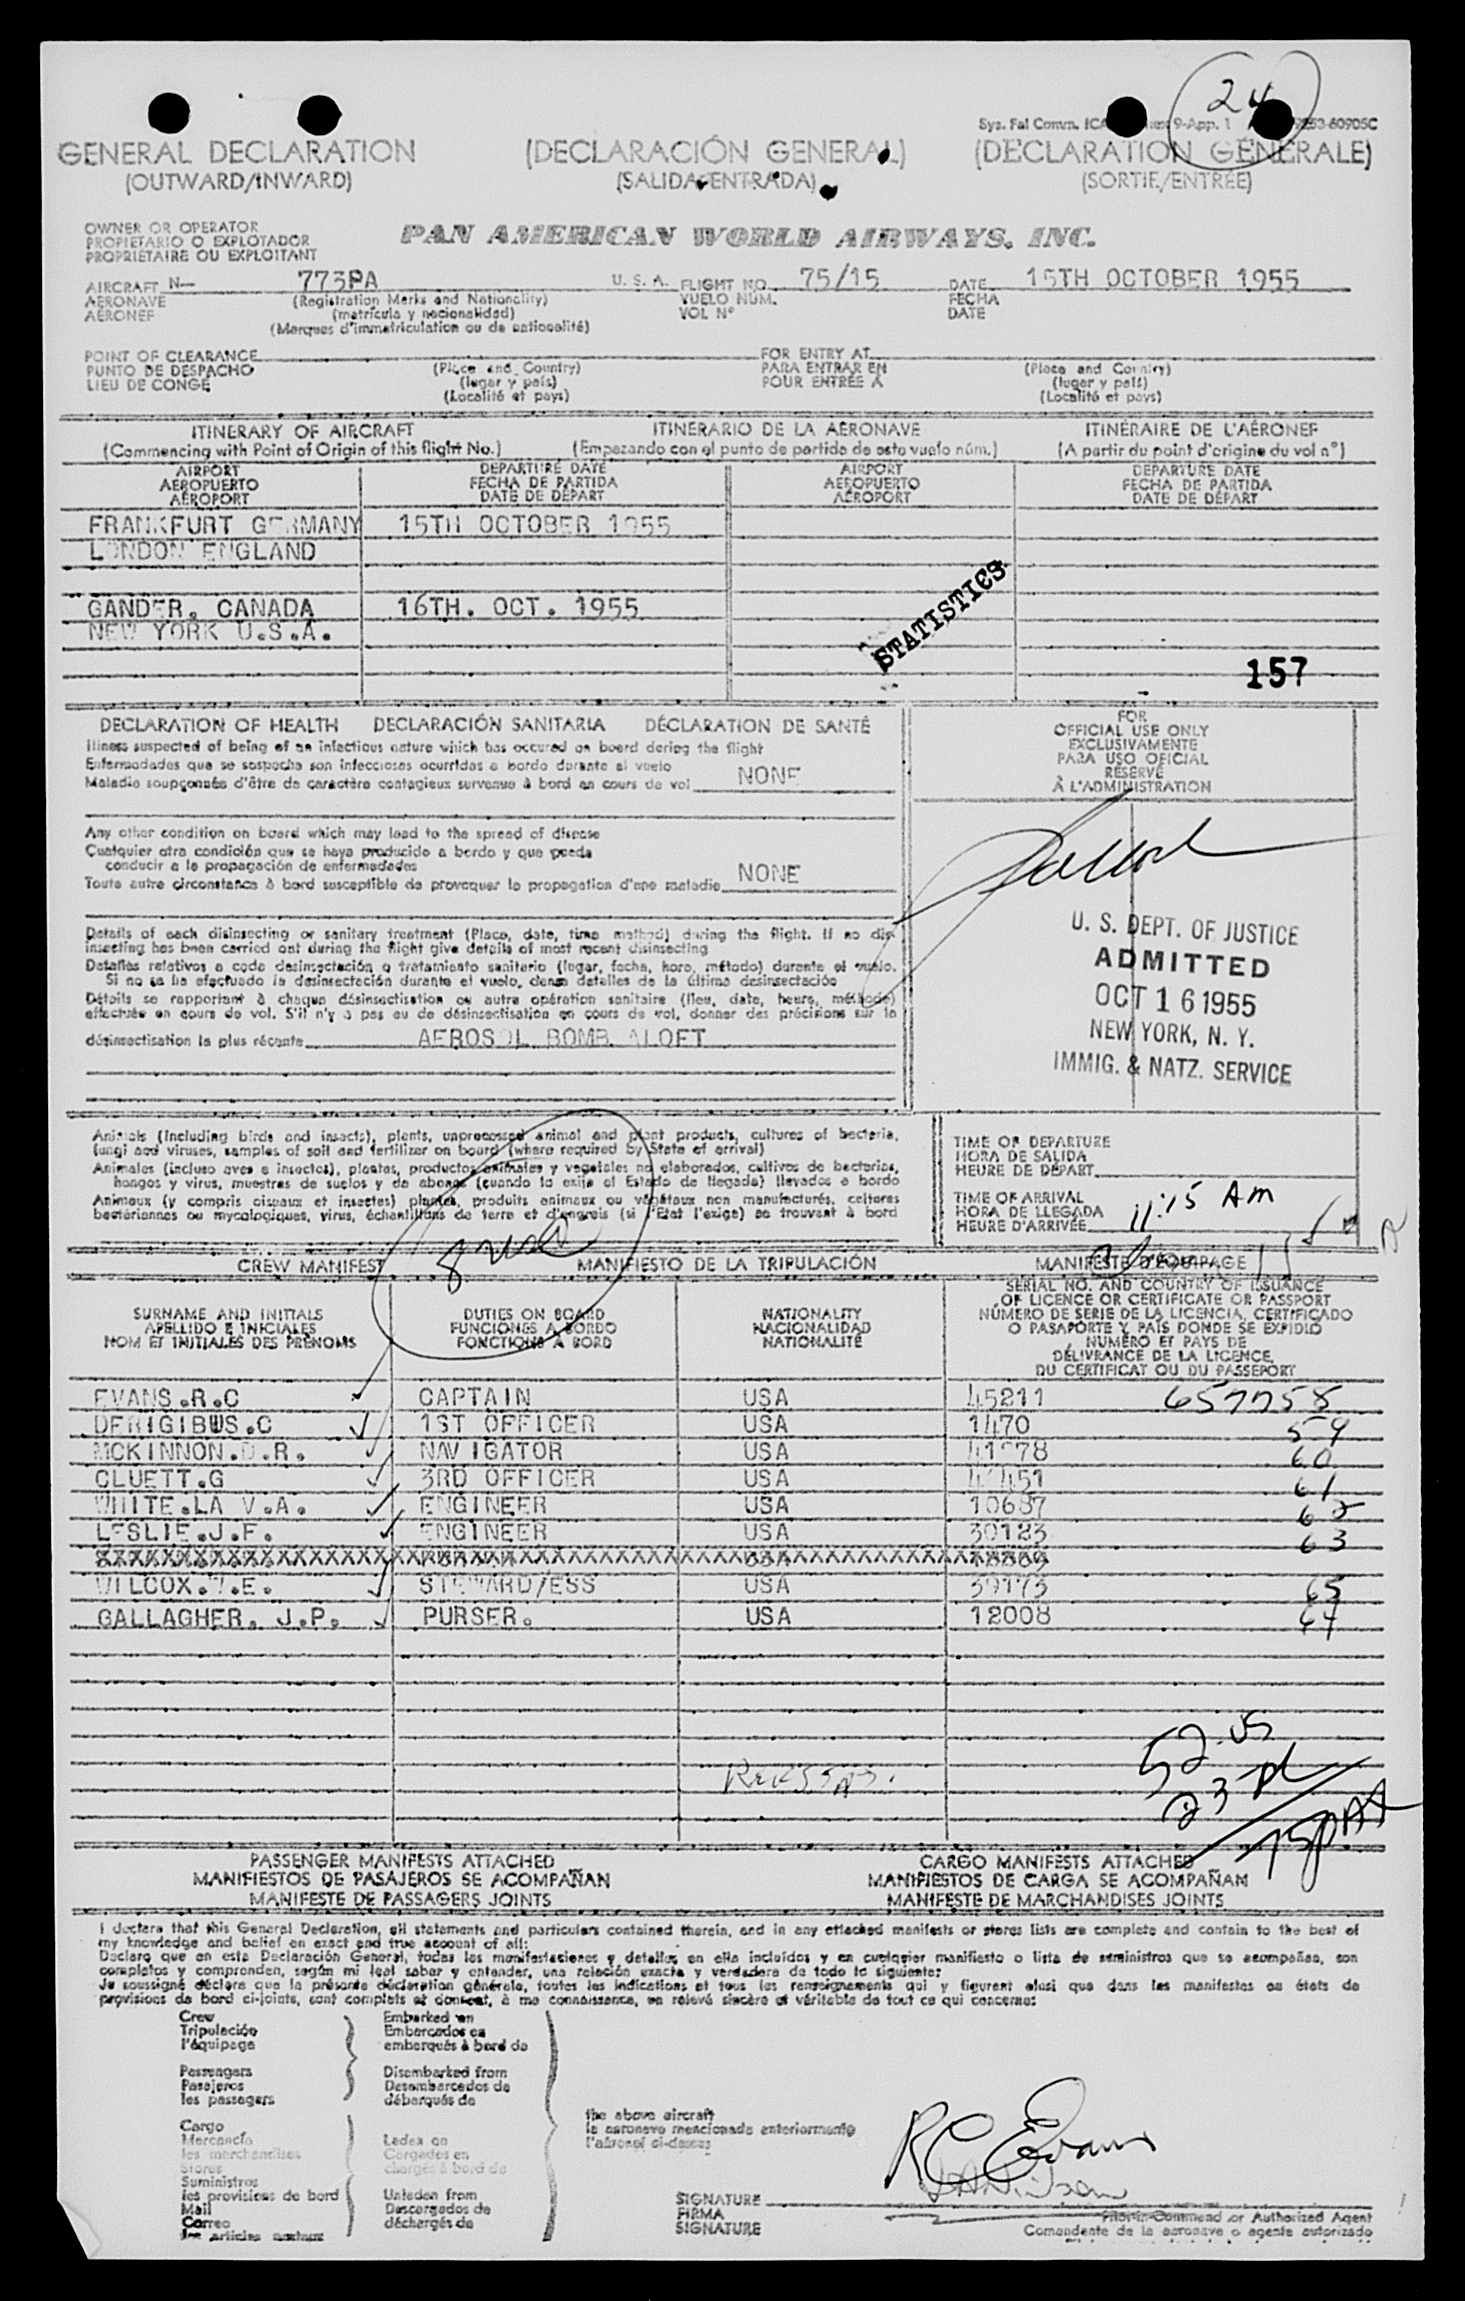 24
Sys. Fal Comm. ICA 9-App. 1
GENERAL DECLARATION (DECLARACIÓN GENERAL) (DÉCLARATION GÉNÉRALE)
(OUTWARD/INWARD) (SALIDA/ENTRADA) (SORTIE/ENTRÉE)
OWNER OR OPERATOR
PROPIETARIO O EXPLOTADOR
PROPRIÉTAIRE OU EXPLOITANT
PAN AMERICAN WORLD AIRWAYS, INC.
AIRCRAFT N— 773PA U. S. A. FLIGHT NO. 75/15 DATE 15TH OCTOBER 1955
AERONAVE (Registration Marks and Nationality) VUELO NUM. FECHA
AÉRONEF (matrícula y nacionalidad) VOL Nº DATE
(Marques d'immatriculation ou de nationalité)
POINT OF CLEARANCE FOR ENTRY AT
PUNTO DE DESPACHO (Place and Country) PARA ENTRAR EN (Place and Country)
LIEU DE CONGÉ (lugar y país) POUR ENTRÉE À (lugar y país)
(Localité et pays) (Localité et pays)
ITINERARY OF AIRCRAFT ITINERARIO DE LA AERONAVE ITINÉRAIRE DE L'AÉRONEF
(Commencing with Point of Origin of this flight No.) (Empezando con el punto de partida de este vuelo núm.) (A partir du point d'origine du vol nº)
AIRPORT DEPARTURE DATE AIRPORT DEPARTURE DATE
AEROPUERTO FECHA DE PARTIDA AEROPUERTO FECHA DE PARTIDA
AÉROPORT DATE DE DÉPART AÉROPORT DATE DE DÉPART
FRANKFURT GERMANY 15TH OCTOBER 1955
LONDON ENGLAND
GANDER. CANADA 16TH. OCT. 1955
NEW YORK U.S.A.
STATISTICS
157
DECLARATION OF HEALTH DECLARACIÓN SANITARIA DÉCLARATION DE SANTÉ
Illness suspected of being of an infectious nature which has occured on board during the flight
Enfermedades que se sospecha son infecciosas ocurridas a bordo durante el vuelo
Maladie soupçonnée d'être de caractère contagieux survenue à bord en cours de vol NONE
Any other condition on board which may lead to the spread of disease
Cualquier otra condición que se haya producido a bordo y que pueda
conducir a la propagación de enfermedades
Toute autre circonstance à bord susceptible de provoquer la propagation d'une maladie NONE
Details of each disinsecting or sanitary treatment (Place, date, time method) during the flight. If no dis-
insecting has been carried out during the flight give details of most recent disinsecting
Detalles relativos a cada desinsectación o tratamiento sanitario (lugar, fecha, hora, método) durante el vuelo.
Si no se ha efectuado la desinsectación durante el vuelo, dense detalles de la última desinsectación
Détails se rapportant à chaque désinsectisation ou autre opération sanitaire (lieu, date, heure, méthode)
effectuée en cours de vol. S'il n'y a pas eu de désinsectisation en cours de vol, donner des précisions sur la
désinsectisation la plus récente AEROSOL BOMB ALOFT
FOR
OFFICIAL USE ONLY
EXCLUSIVAMENTE
PARA USO OFICIAL
RÉSERVÉ
À L'ADMINISTRATION
U. S. DEPT. OF JUSTICE
ADMITTED
OCT 16 1955
NEW YORK, N. Y.
IMMIG. & NATZ. SERVICE
Animals (including birds and insects), plants, unprocessed animal and plant products, cultures of bacteria,
fungi and viruses, samples of soil and fertilizer on board (where required by State of arrival)
Animales (incluso aves e insectos), plantas, productos animales y vegetales no elaborados, cultivos de bacterias,
hongos y virus, muestras de suelos y de abonos (cuando lo exija el Estado de llegada) llevados a bordo
Animaux (y compris oiseaux et insectes) plantes, produits animaux ou végétaux non manufacturés, cultures
bactériennes ou mycologiques, virus, échantillons de terre et d'engrais (si l'État l'exige) se trouvant à bord
TIME OF DEPARTURE
HORA DE SALIDA
HEURE DE DÉPART
TIME OF ARRIVAL
HORA DE LLEGADA
HEURE D'ARRIVÉE 11:15 AM
CREW MANIFEST MANIFIESTO DE LA TRIPULACIÓN MANIFESTE D'ÉQUIPAGE
SURNAME AND INITIALS DUTIES ON BOARD NATIONALITY
APELLIDO E INICIALES FUNCIONES A BORDO NACIONALIDAD
NOM ET INITIALES DES PRÉNOMS FONCTIONS À BORD NATIONALITÉ
SERIAL NO. AND COUNTRY OF ISSUANCE
OF LICENCE OR CERTIFICATE OR PASSPORT
NÚMERO DE SERIE DE LA LICENCIA, CERTIFICADO
O PASAPORTE Y PAÍS DONDE SE EXPIDIÓ
NUMÉRO ET PAYS DE
DÉLIVRANCE DE LA LICENCE,
DU CERTIFICAT OU DU PASSEPORT
EVANS.R.C CAPTAIN USA 45211 657758
DERIGIBUS.C 1ST OFFICER USA 1470 59
MCKINNON.D.R. NAVIGATOR USA 60
CLUETT.G 3RD OFFICER USA 61
WHITE.LA V.A. ENGINEER USA 10687 62
LESLIE.J.F. ENGINEER USA 30123 63
WILCOX. .E. STEWARD/ESS USA 39173 65
GALLAGHER. J.P. PURSER. USA 12008 64
52 us
23 pl
75 pax
PASSENGER MANIFESTS ATTACHED CARGO MANIFESTS ATTACHED
MANIFIESTOS DE PASAJEROS SE ACOMPAÑAN MANIFIESTOS DE CARGA SE ACOMPAÑAN
MANIFESTE DE PASSAGERS JOINTS MANIFESTE DE MARCHANDISES JOINTS
I declare that this General Declaration, all statements and particulars contained therein, and in any attached manifests or stores lists are complete and contain to the best of
my knowledge and belief an exact and true account of all:
Declaro que en esta Declaración General, todas las manifestaciones y detalles en ella incluídos y en cualquier manifiesto o lista de suministros que se acompañan, son
completos y comprenden, según mi leal saber y entender, una relación exacta y verdadera de todo lo siguiente:
Je soussigné déclare que la présente déclaration générale, toutes les indications et tous les renseignements qui y figurent ainsi que dans les manifestes ou états de
provisions de bord ci-joints, sont complets et donnent, à ma connaissance, un relevé sincère et véritable de tout ce qui concerne:
Crew Embarked on
Tripulación Embarcados en
l'équipage embarqués à bord de
Passengers Disembarked from
Pasajeros Desembarcados de
les passagers débarqués de
Cargo
Mercancía Laden on
les marchandises Cargados en
Stores chargés à bord de
Suministros
les provisions de bord Unladen from
Mail Descargados de
Correo déchargés de
les articles postaux
the above aircraft
la aeronave mencionada anteriormente
l'aéronef ci-dessus
RC Evans
SIGNATURE
FIRMA
SIGNATURE
Pilot-in-Command or Authorized Agent
Comandante de la aeronave o agente autorizado